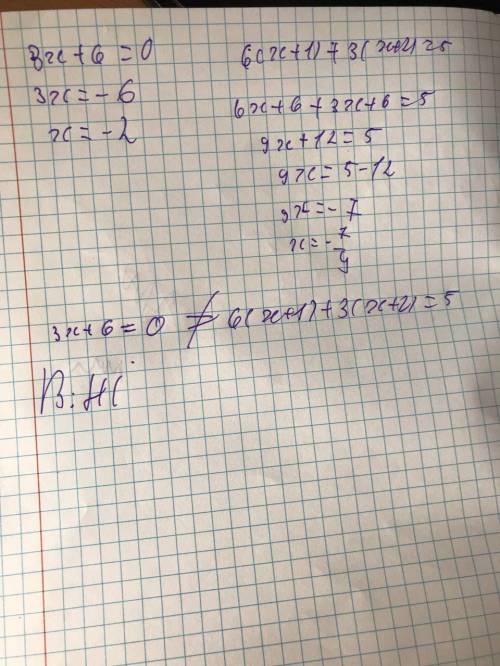 3x + 6 = 0
3x = - 6
x = - 2
6(x+1) + 3(x+2) = 5
6x + 6 + 3x + 6 = 5
9x + 12 = 5
9x = 5 - 12
9x = - 7
x = - 7/9
3x + 6 = 0 ≠ 6(x+1) + 3(x+2) = 5
В: Ні